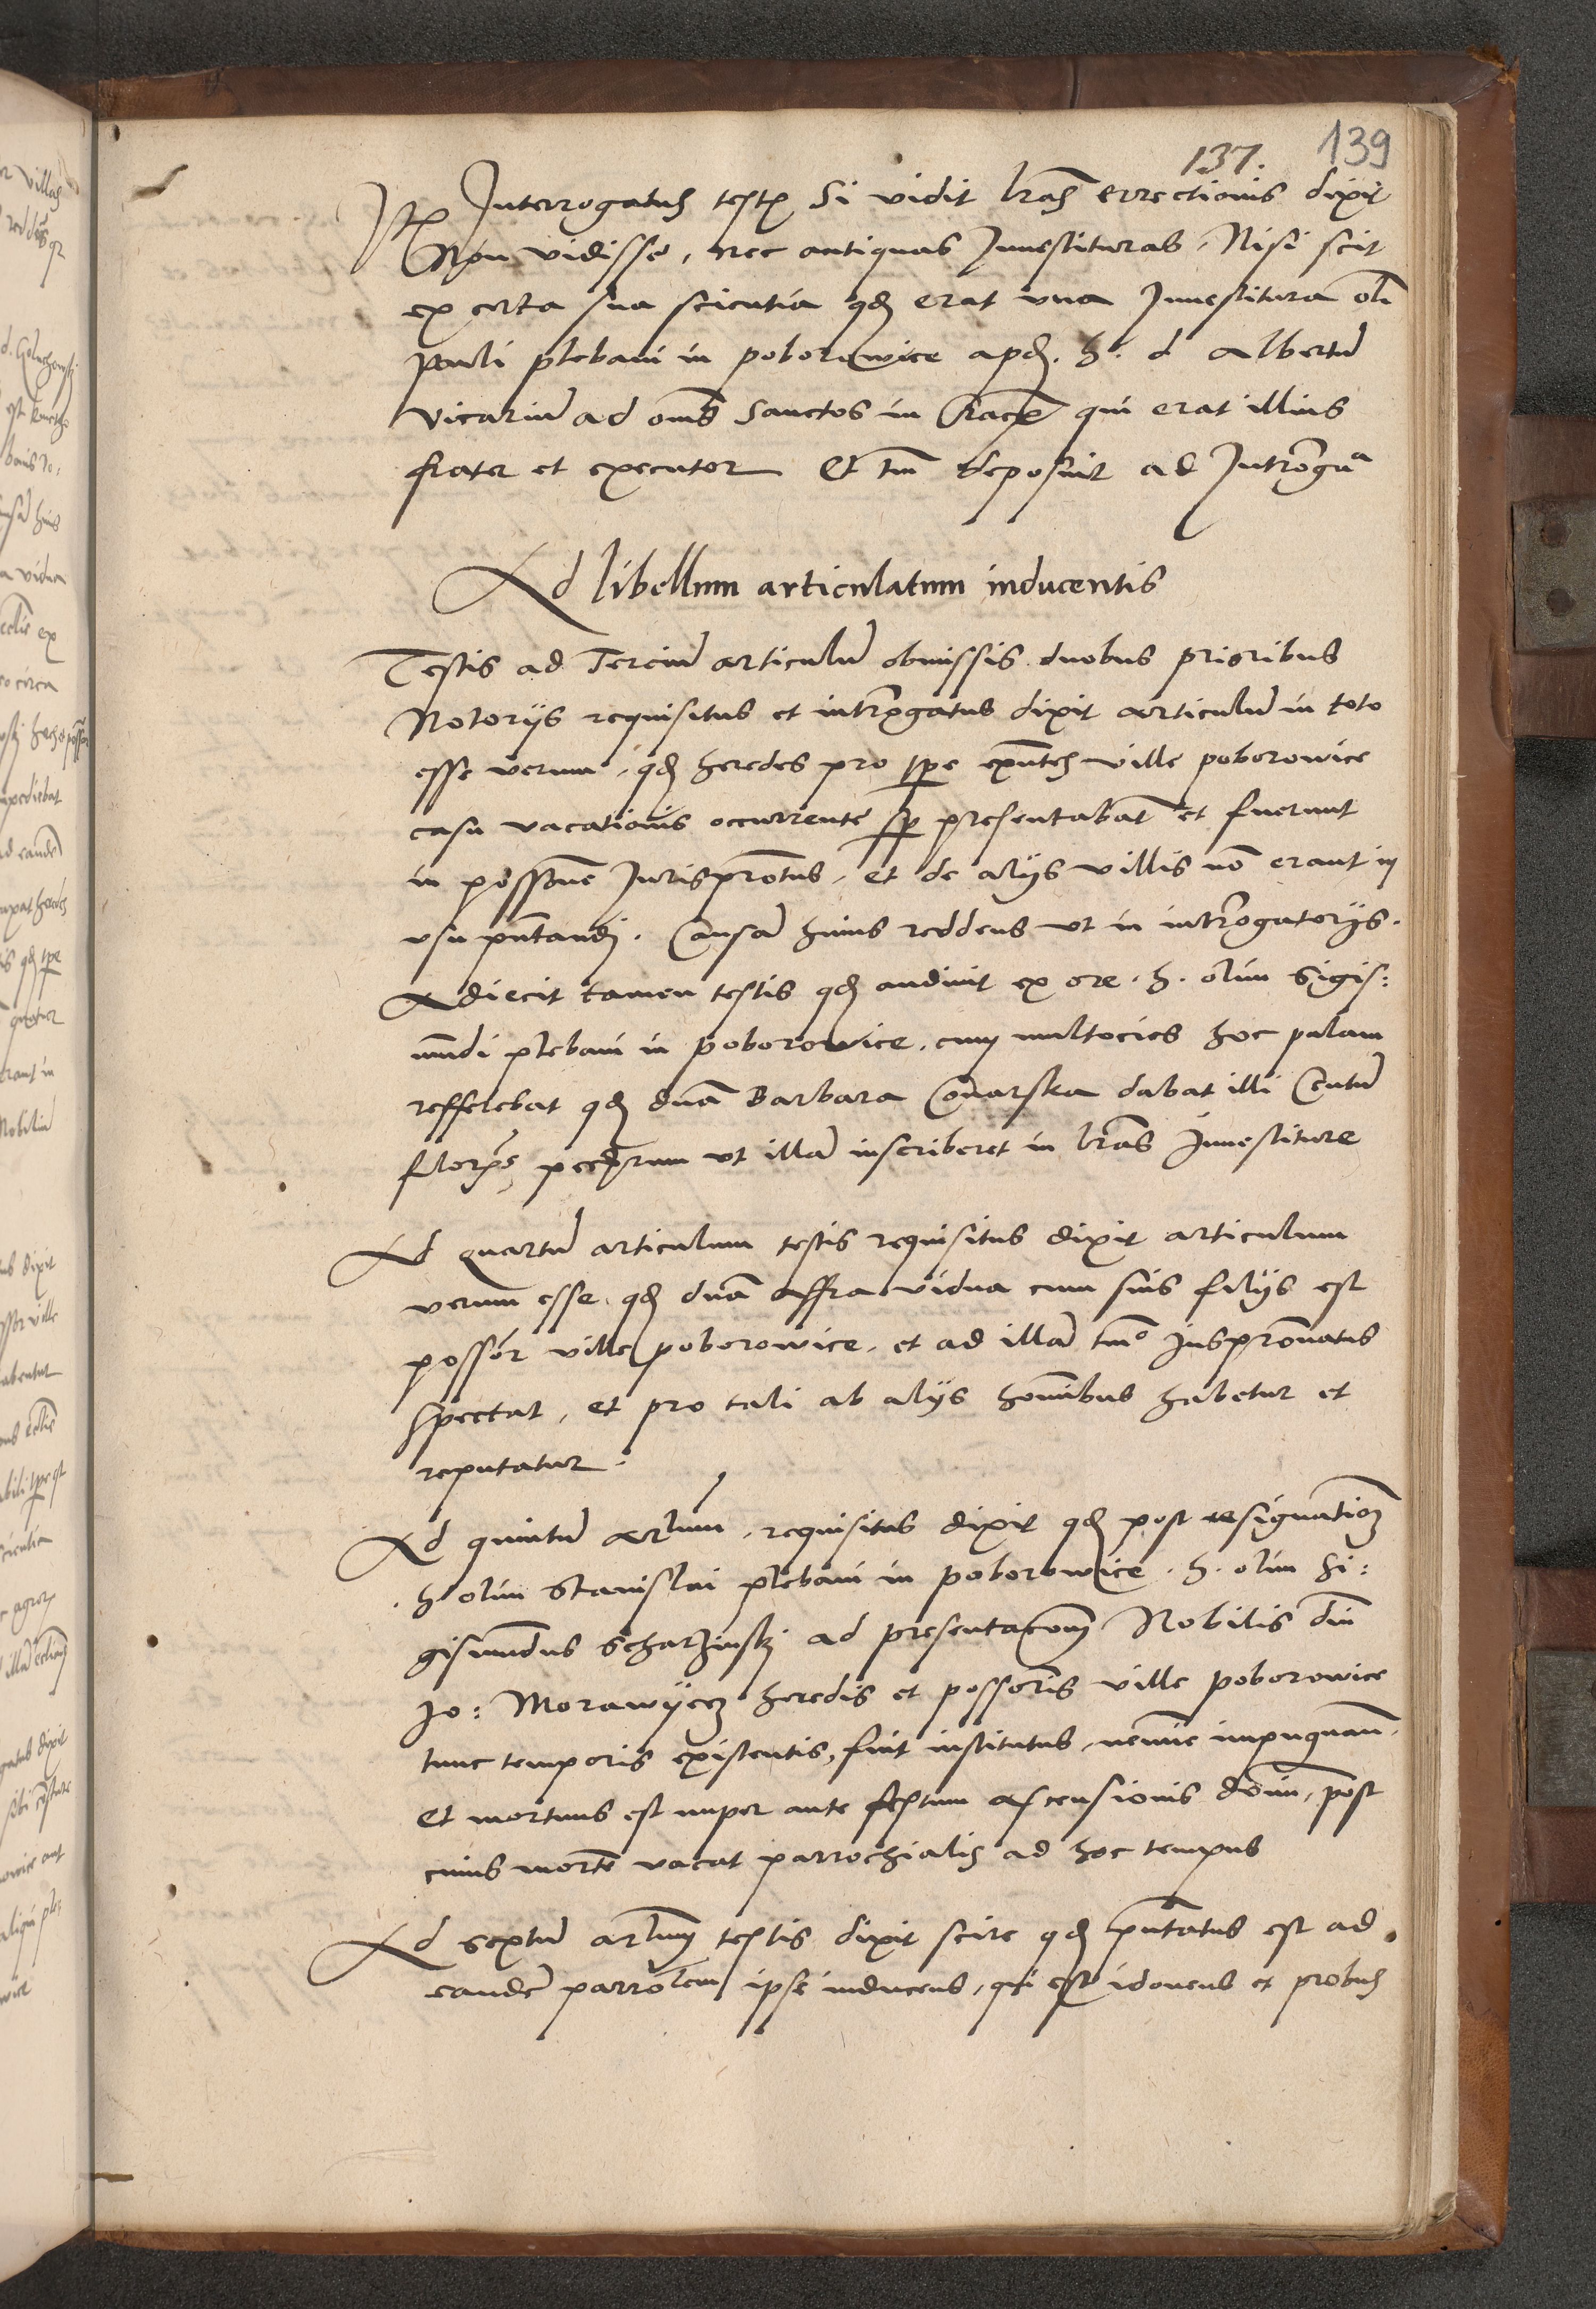 137. 139
Itē Interrogatus testis Si vidit lrās errectionis dixit
Non vidisse, nec antiquas Inuestituras, Nisi scit
ex certa sua scientia qd erat vna Inuestitura olī
pauli plebani in poborowice apd. h. d Albertū
vicariū ad oms̄ sanctos in Crac̄ qui erat illius
frater et executor Et tm̄ deposuit ad Intrōgaᵃ
Ad libellum articulatum inducentis
Testis ad Terciū articulū obmissis duobus prioribus
Notorijs requisitus et intrōgatus dixit articulū in toto
esse verum, qd heredes pro tpe exn̄tes ville poborowice
casu vacationis occurrente sp̄ presentabāt et fuerunt
in possone Jurisprōtus, et de alijs villis nō erant in
vsu pn̄tandi. Causā huius reddens vt in intrōgatorijs.
Adiecit tamen testis qd audiuit ex ore. h. olim Sigis:
mundi plebani in poborowice, cum multocies hoc palam
refferebat qd dnā Barbara Conarska dabat illi Centū
flor. pecc̄rum vt illā inscriberet in lrās Inuestiture
Ad quartū articulum testis requisitus dixit articulum
verum esse, qd dnā Affra vidua cum suis filijs est
possōr ville poborowice, et ad illā tm̄o Jusprōnatus
spectat, et pro tali ab alijs homībus habetur et
reputatur.
Ad quintū arlum, requisitus dixit qd post resignatioz
h olim Stanislai plebani in poborowice. h. olim Si:
gismundus Scharzinski ad presentacom̄ Nobilis dnī
Jo: Morawycz heredis et possoris̄ ville poborowice
tunc temporis existentis, fuit institutus, nemīe impugnan̄.
Et mortuus est nuper ante festum ascensionis domī, post
cuius mortē vacat parrochialis ad hoc tempus
Ad sextū arlum̄ testis dixit scire qd pn̄tatus est ad
eandē parrōlem ipse inducens, qui est idoneus et probus